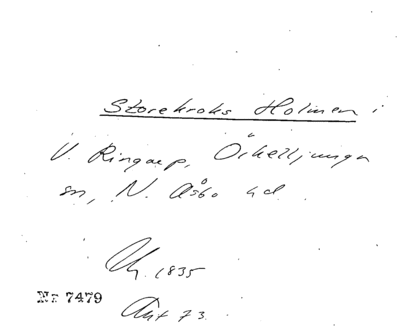 Storekroks Holmen i
V. Ringarp, Örkelljunga
sn, N. Åsbo hd.
Ak. 1835
Akt 73.
Nr 7479